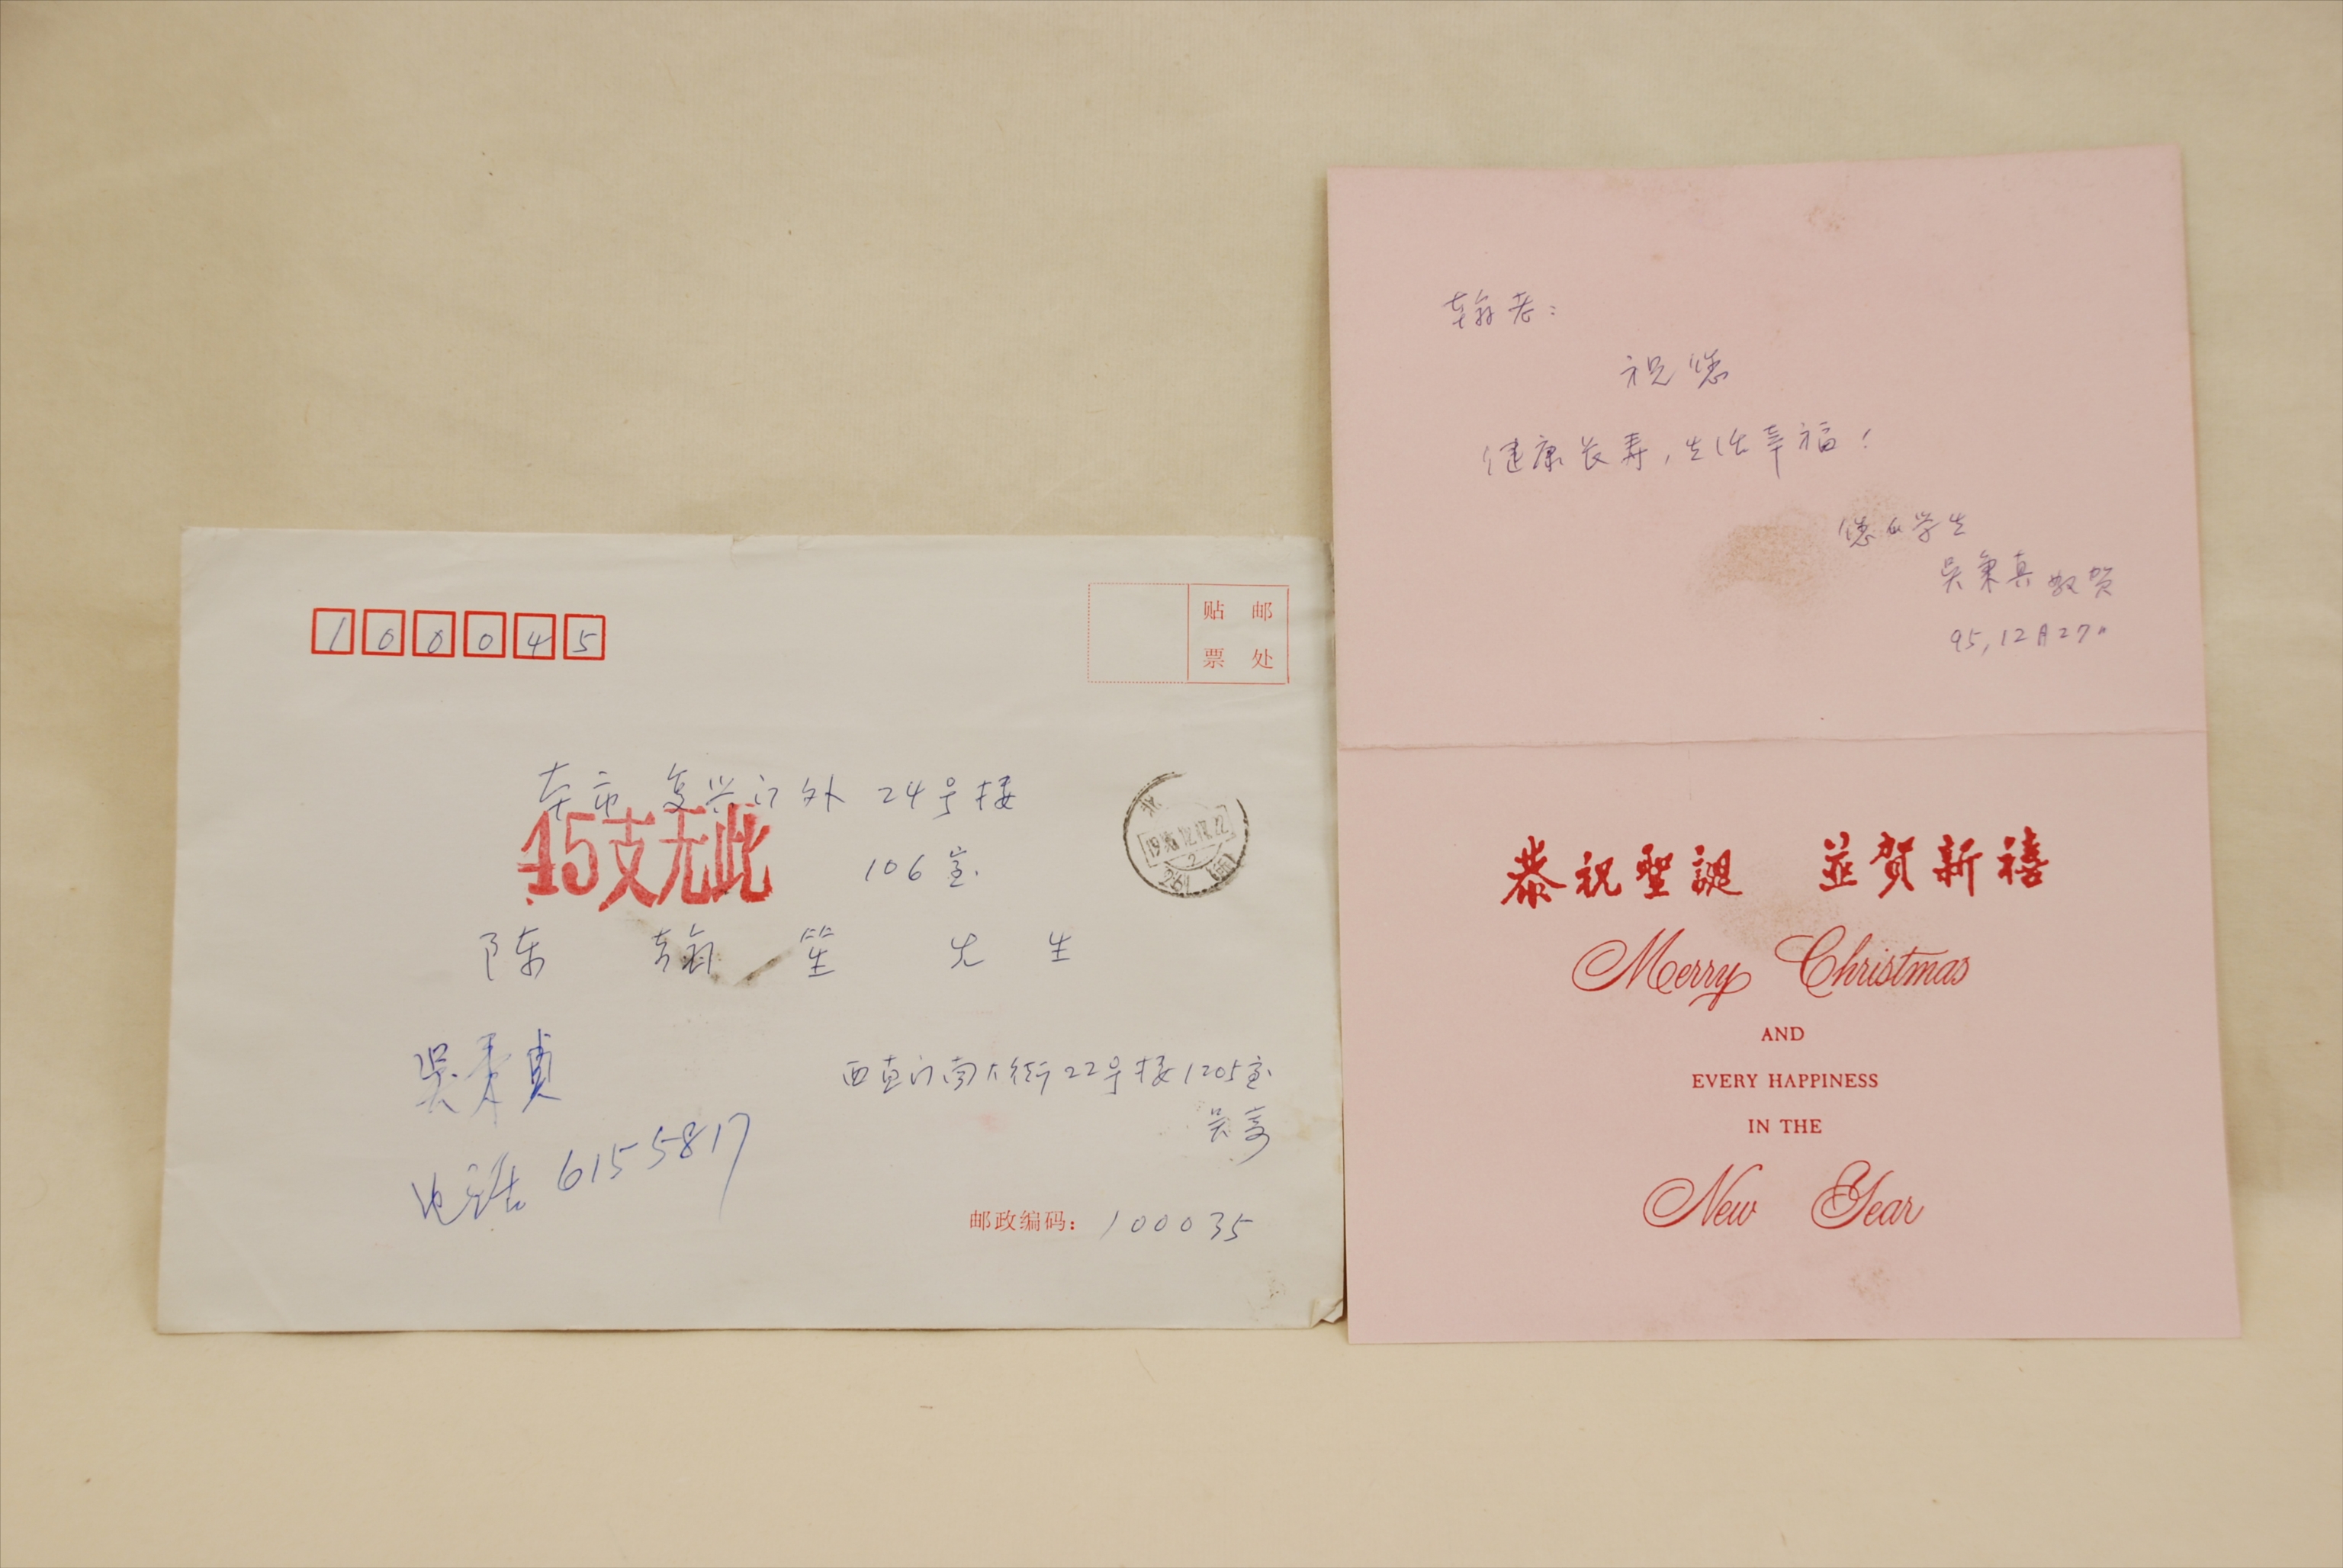 100045
贴 邮
票 处
本市 复兴门外 24号楼
45支无此
106室
陈 翰 笙 先 生
吴秉真
电话 6155817
西直门南大街22号楼1205室
吴寄
邮政编码: 100035
翰老:
祝您
健康长寿,生活幸福!
您的学生
吴秉真敬贺
95,12月27日
恭祝聖誕 並賀新禧
Merry Christmas
AND
EVERY HAPPINESS
IN THE
New Year